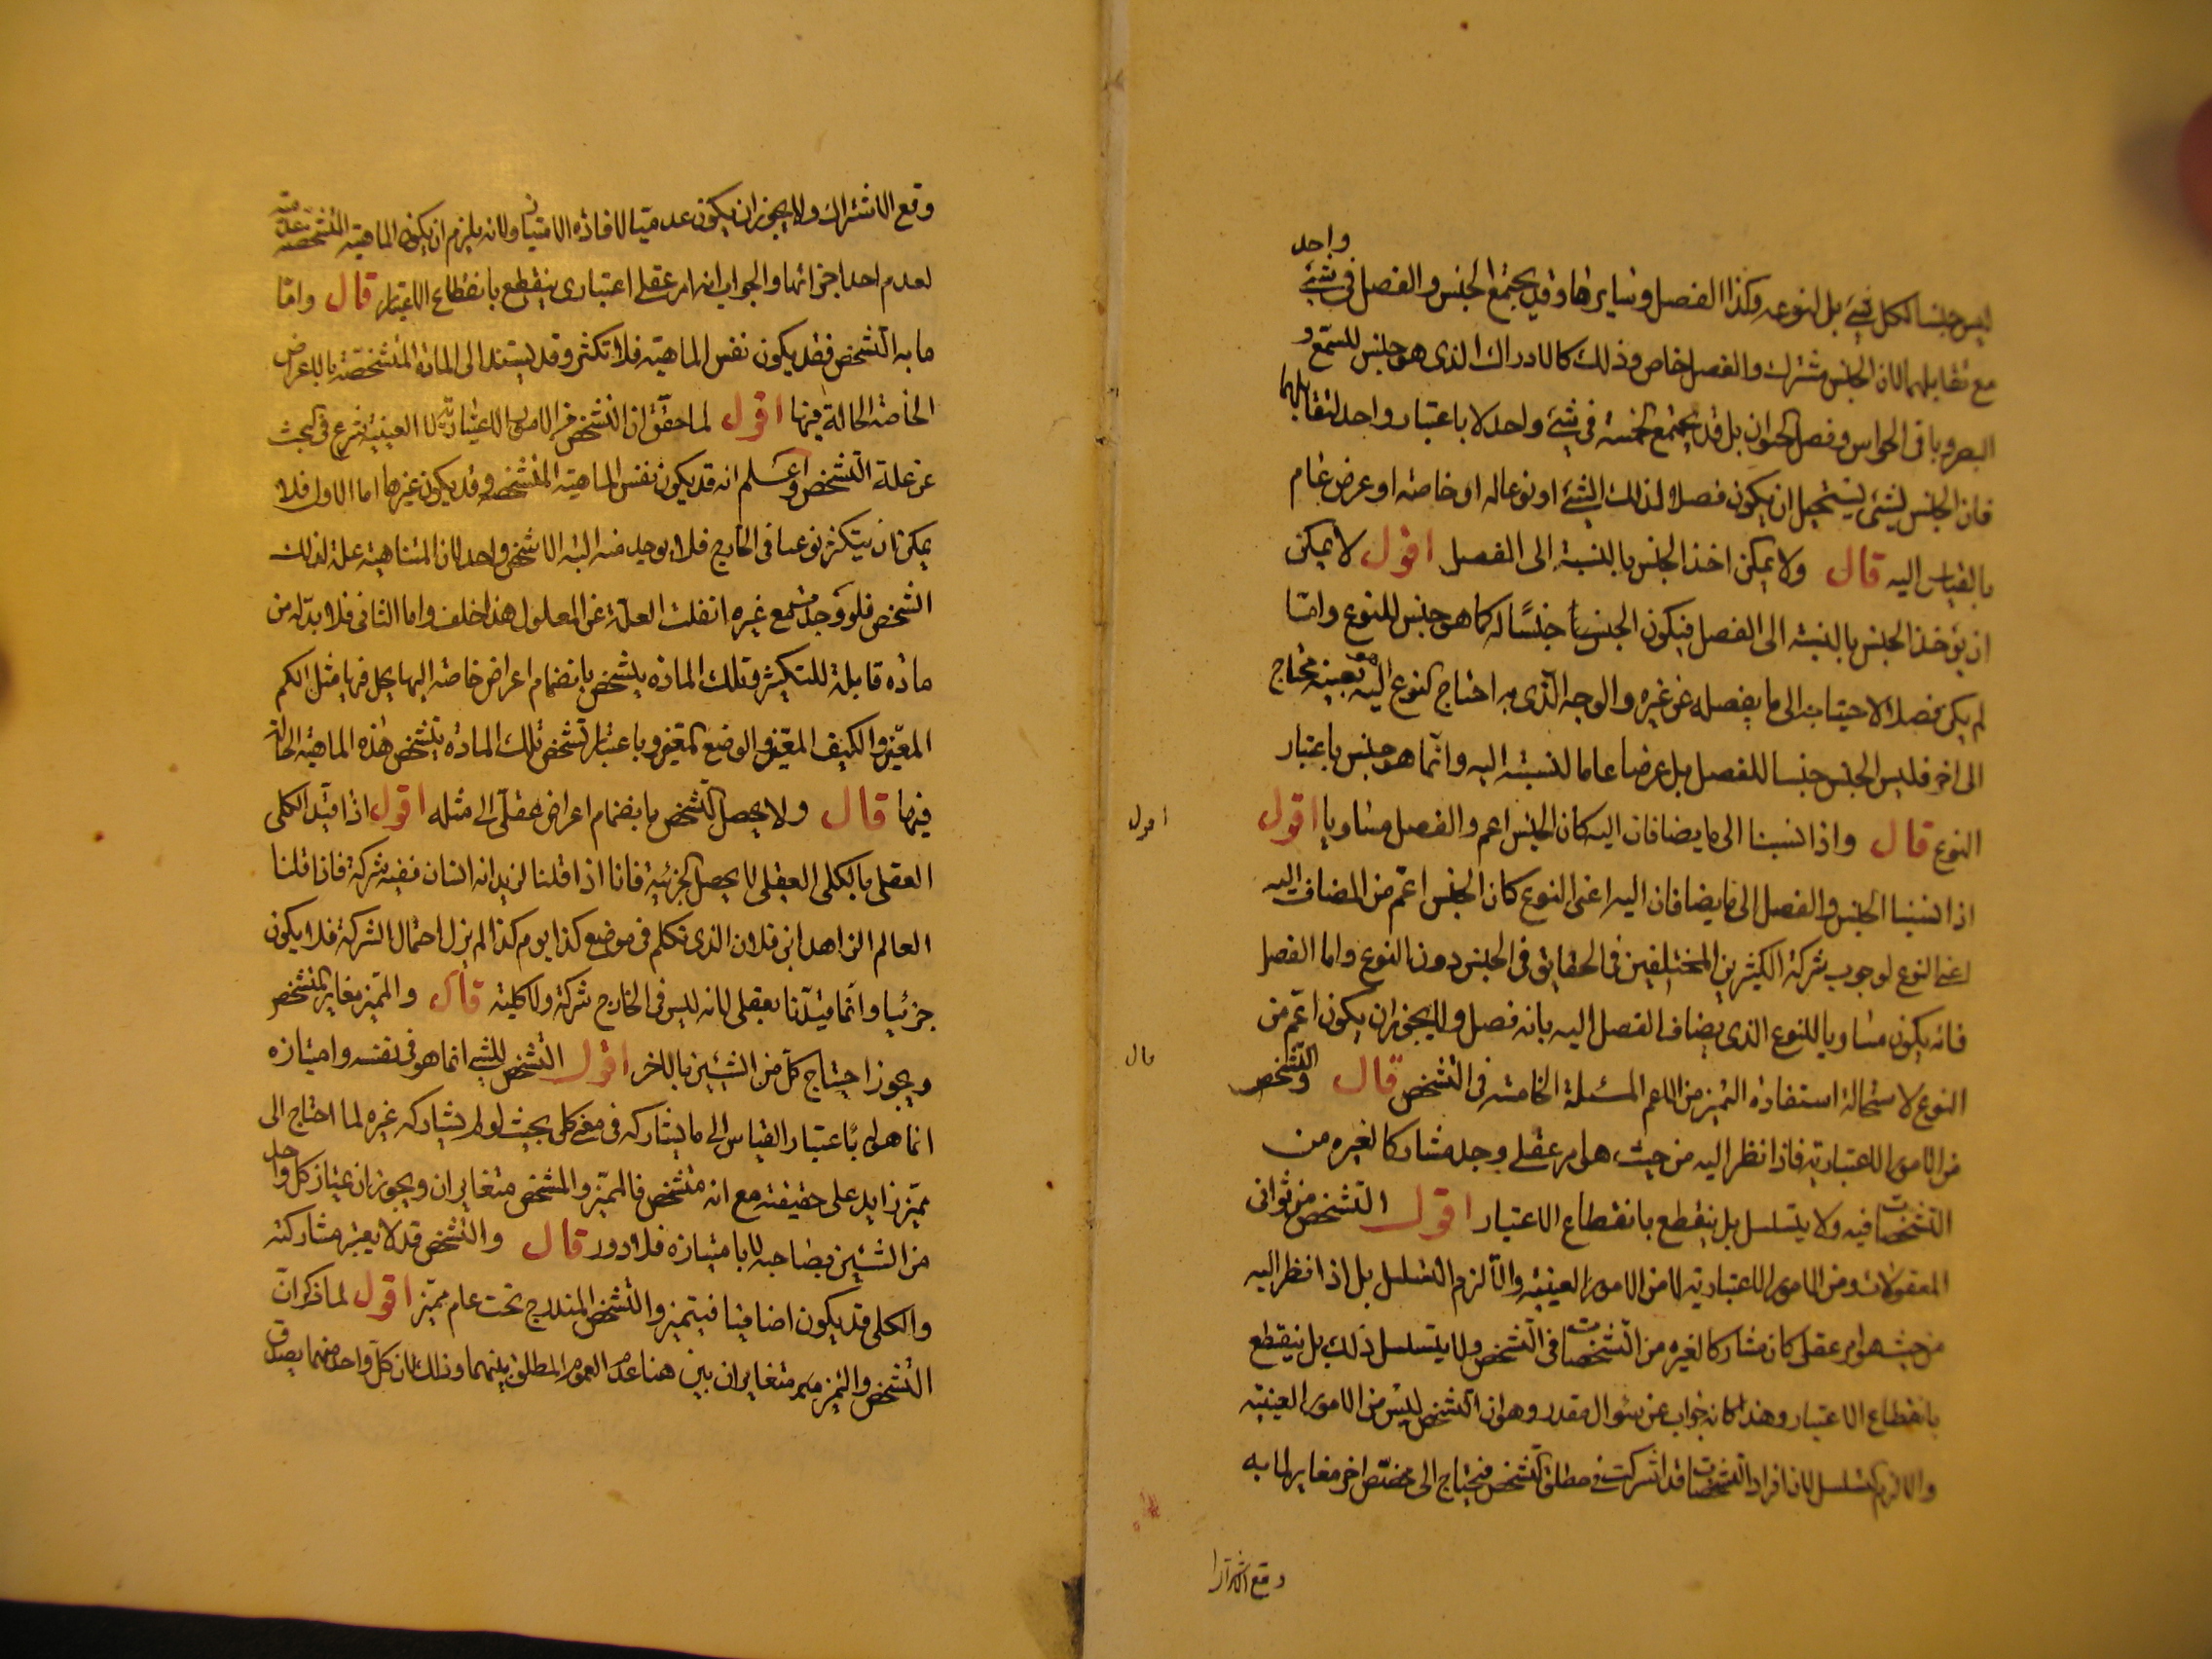 واحد
ليس جنسا لكل شيء بل لنوعه وكذا الفصل وسايرها وقد يجتمع الجنس والفصل في شيء
مع تقابلهما لان الجنس مشترك والفصل خاص وذلك كالادراك الذي هو جنس للسمع و
البصر وباقي الحواس وفصل الحيوان بل قد يجتمع الخمسة في شيء واحد لا باعتبار واحد لتقابلها
فان الجنس لشيء يستحيل ان يكون فصلا لذلك الشيء او نوعا له او خاصة او عرض عام
بالقياس اليه قال ولا يمكن اخذ الجنس بالنسبة الى الفصل اقول لا يمكن
ان يؤخذ الجنس بالنسبة الى الفصل فيكون الجنس جنسًا له كما هو جنس للنوع وامّا
لم يكن فصلا لاحتياجه الى ما يفصله عن غيره والوجه الّذي به احتاج النوع اليه هو بعينه محتاج
الى اخر فليس الجنس جنسا للفصل بل عرضا عاما لنسبته اليه وانّما هو جنس باعتبار
النوع قال واذا نسبنا الى ما يضافان اليه كان الجنس اعم والفصل مساويا اقول
اقول
اذا نسبنا الجنس والفصل الى ما يضافان اليه اعنى النوع كان الجنس اعمّ من المضاف اليه
اعنى النوع لوجوب شركة الكثيرين المختلفين في الحقايق في الجنس دون النوع واما الفصل
فانه يكون مساويا للنوع الذي يضاف الفصل اليه بانه فصل ولا يجوز ان يكون اعمّ من
قال
النوع لاستحالة استفادة التميز من الاعم المسئلة الخامسة في التشخص قال والتشخص
من الامور الاعتبارية فاذا نظر اليه من حيث هو امر عقلي وجد مشاركا لغيره من
التشخصات فيه ولا يتسلسل بل ينقطع بانقطاع الاعتبار اقول التشخص من ثواني
المعقولات ومن الامور الاعتبارية لا من الامور العينيه والّا لزم التسلسل بل اذا نظر اليه
من حيث هو امر عقلي كان مشاركا لغيره من التشخصات في التشخص ولا يتسلسل ذلك بل ينقطع
بانقطاع الاعتبار وهذا كانه جواب عن سؤال مقدر وهو ان التشخص ليس من الامور العينيه
والا لزم التسلسل لان افراد التشخصات قد اشتركت في مطلق التشخص فيحتاج الى مخصّص اخر مغاير لما به
وقع الاشتراك
وقع الاشتراك ولا يجوز ان يكون عدميّا لافادة الامتياز ولانه يلزم ان يكون الماهية المتشخصة عدمية
لعدم احد اجزائها والجواب انه امر عقلي اعتباري ينقطع بانقطاع الاعتبار قال وامّا
ما به التشخص فقد يكون نفس الماهية فلا تكثر وقد يستند الى المادة المتشخصة بالاعراض
الخاصة الحالة فيها اقول لما حقّق ان التشخص من الامور الاعتبارية لا العينية شرع في البحث
عن علة التشخص واعلم انه قد يكون نفس الماهية المتشخصة وقد يكون غيرها اما الاول فلا
يمكن ان يتكثر نوعها في الخارج فلا يوجد منه البتة الا شخص واحد لان الماهية علة لذلك
الشخص فلو وجد مع غيره انفكت العلّة عن المعلول هذا خلف واما الثاني فلا بدّ له من
مادة قابلة للتكثر وتلك المادة يتشخص بانضمام اعراض خاصة اليها يحل فيها مثل الكم
المعيّن والكيف المعيّن والوضع المعين وباعتبار تشخص تلك المادة يتشخص هذه الماهية الحالة
فيها قال ولا يحصل التشخص بانضمام اعراض عقلي الى مثله اقول اذا قيّد الكلي
العقلي بالكلي العقلي لا يحصل الجزئية فانا اذا قلنا لزيد انه انسان ففيه شركة فاذا قلنا
العالم الزاهد ابن فلان الذي تكلم في موضع كذا يوم كذا لم يزل احتمال الشركة فلا يكون
جزئيا وانّما قيّدنا بعقلي لانه ليس في الخارج شركة ولا كلية قال والتميز مغاير للتشخص
ويجوز احتياج كلّ من الشيئين بالاخر اقول التشخص للشيء انما هو في نفسه وامتيازه
انما هو له باعتبار القياس الى ما يشاركه في معنى كلي بحيث لو لم يشاركه غيره لما احتاج الى
مميّز زايد على حقيقته مع انه متشخص فالمميّز والمشخص متغايران ويجوز ان يمتاز كل واحد
من الشيئين بصاحبه لا بامتيازه فلا دور قال والتشخص قد لا يعتبر مشاركته
والكلي قد يكون اضافيا فيتميز والتشخص المندرج تحت عام متميز اقول لما ذكر انّ
التشخص والتميز متغايران بين هنا عدم العموم المطلق بينهما وذلك لان كلّ واحد منهما يصدق